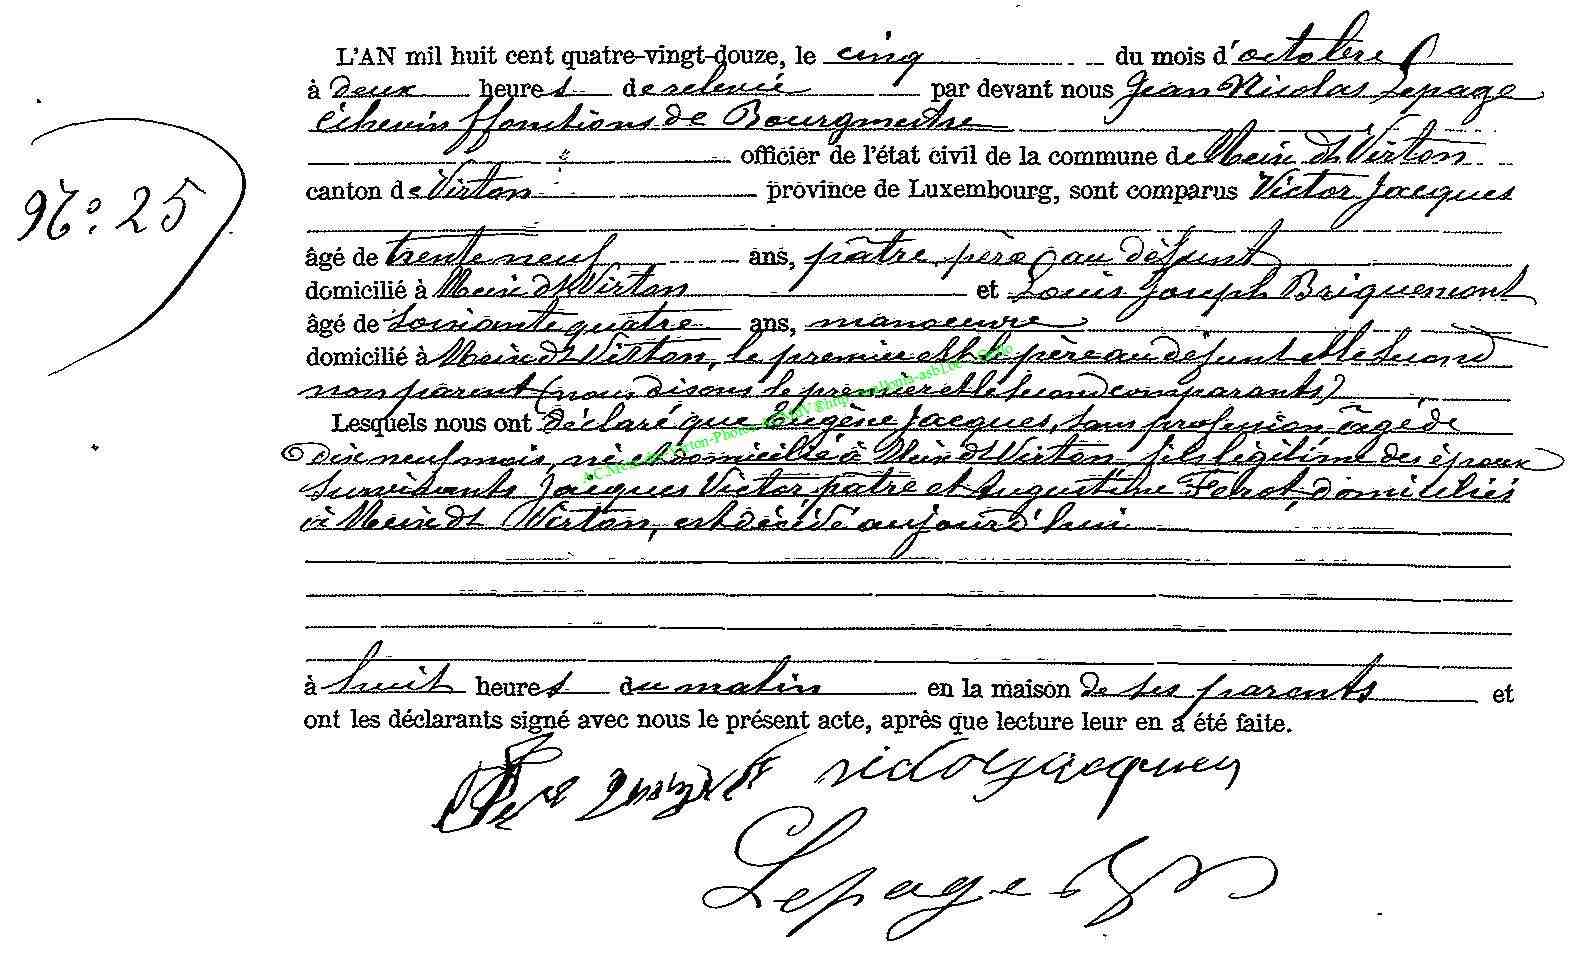 L'AN mil huit cent quatre-vingt-douze, le cinq du mois d'octobre
à deux heures de relevée par devant nous Jean Nicolas Lepage
échevin ffonctions de Bourgmestre
officier de l'état civil de la commune de Meix dt Virton
canton de Virton province de Luxembourg, sont comparus Victor Jacques
N° 25
âgé de trente neuf ans, pâtre, père au défunt
domicilié à Meix dt Virton et Louis Joseph Briquemont
âgé de soixante quatre ans, manoeuvre
domicilié à Meix dt Virton, le premier est le père au défunt et le second
non parent (nous disons le premier et le second comparants)
Lesquels nous ont déclaré que Eugène Jacques, sans profession, âgé de
dix neuf mois, né et domicilié à Meix dt Virton, fils légitime des époux
survivants Jacques Victor pâtre et Augustine Ferot, domiciliés
à Meix dt Virton, est décédé aujourd'hui
à huit heures du matin en la maison de ses parents et
ont les déclarants signé avec nous le présent acte, après que lecture leur en a été faite.
victor jacques
Lepage